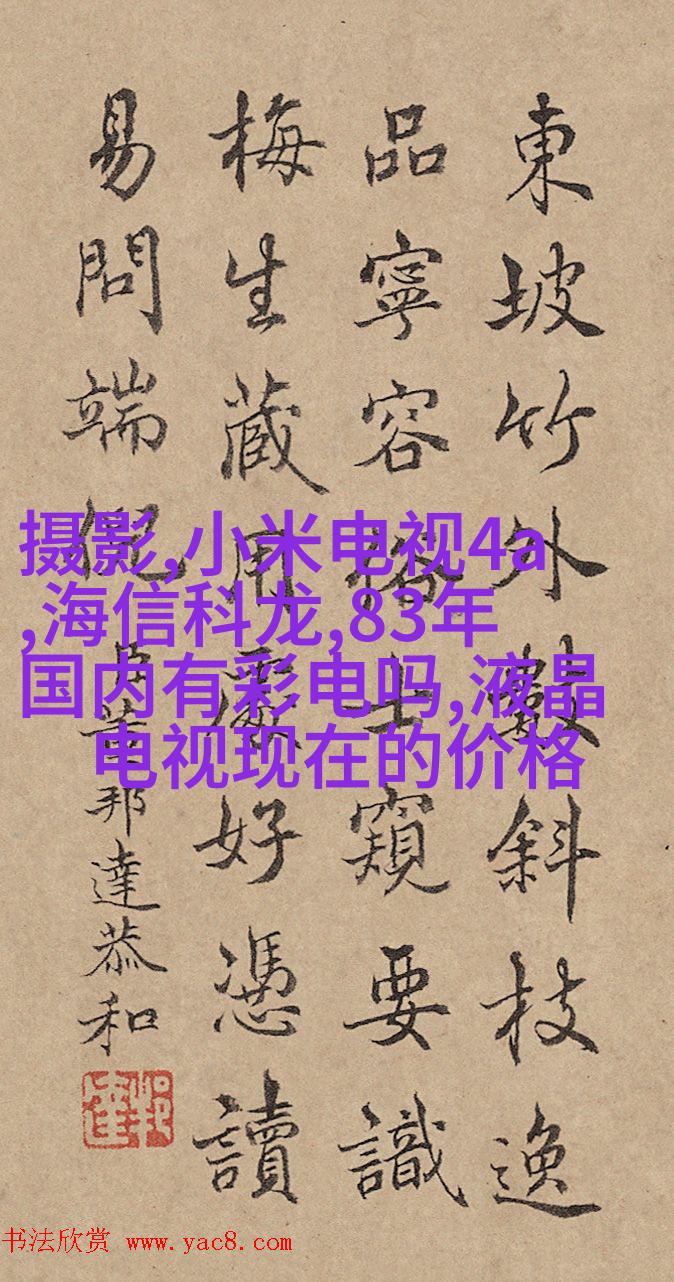 東坡竹外數斜枝逸
品寧容俗士窺要識
梅生藏用處好憑讀
易問端倪
臣董邦達恭和
摄影,小米电视4a
,海信科龙,83年
国内有彩电吗,液晶
电视现在的价格
书法欣赏 www.yac8.com